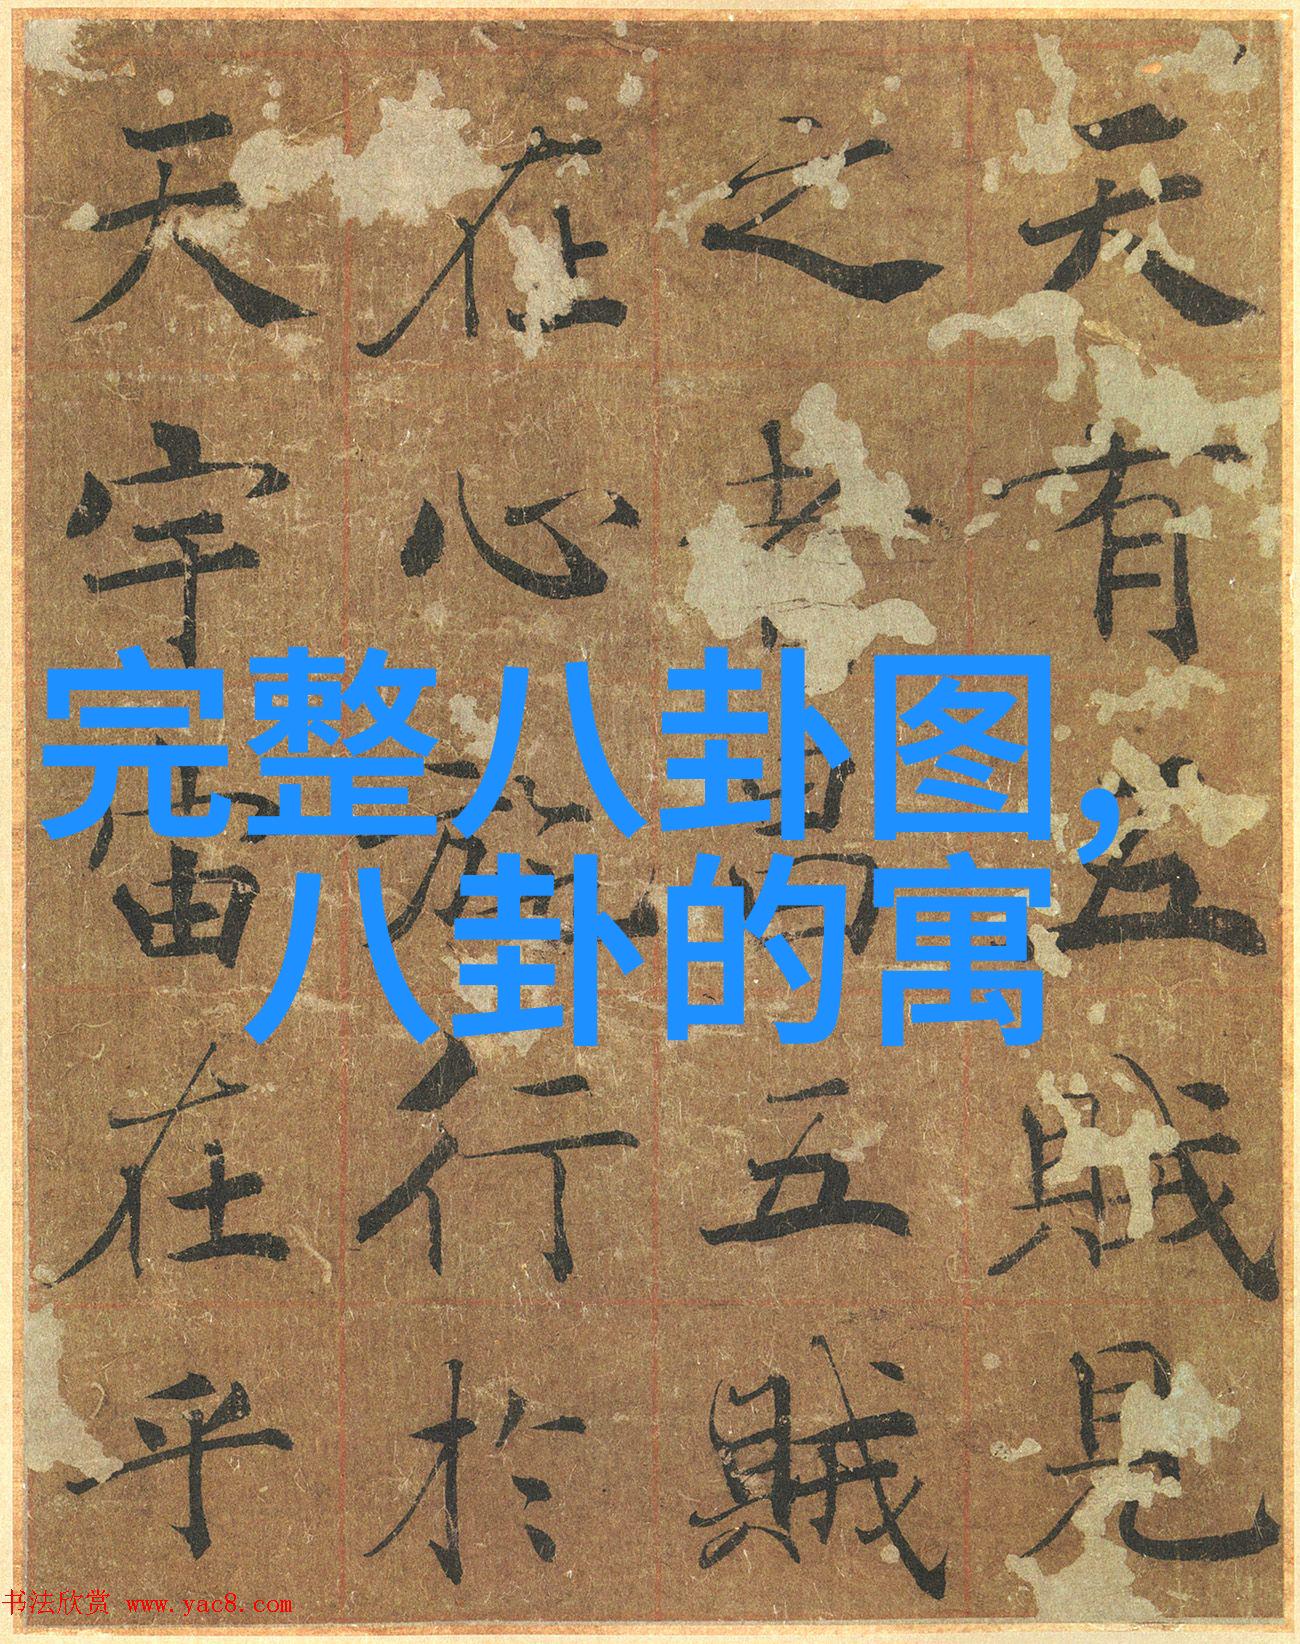 天有五賊見
之昌五賊
在心行於
天宇宙在乎
完整八卦图,
八卦的寓
书法欣赏 www.yac8.com